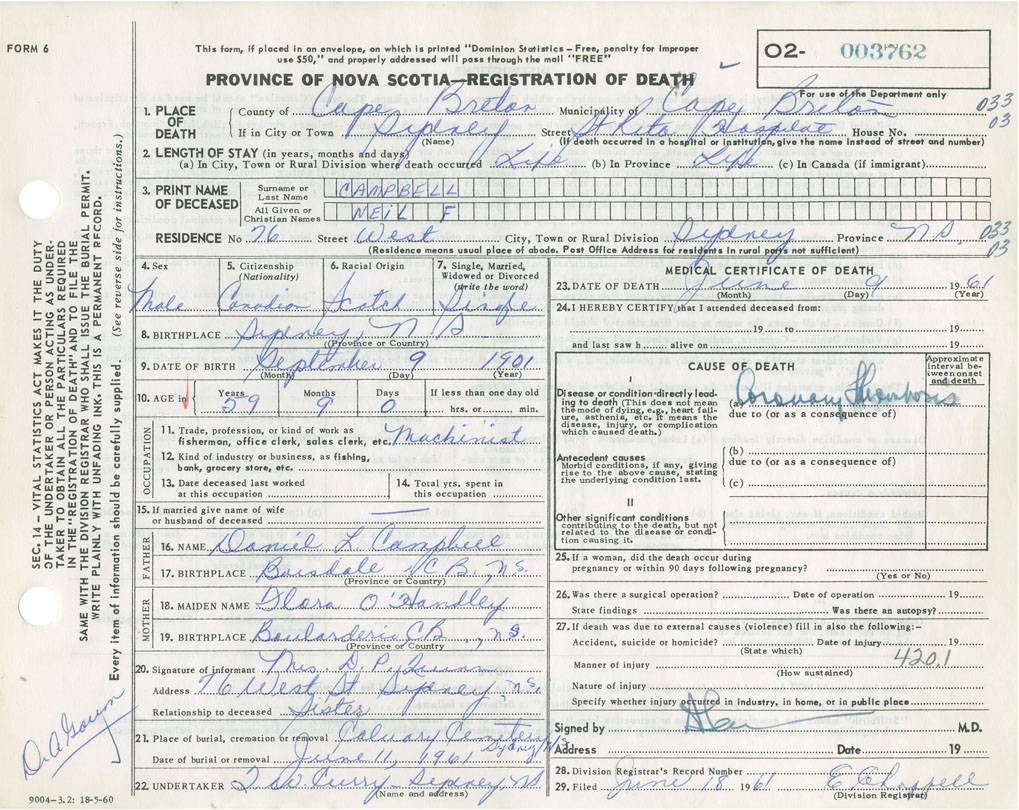 FORM 6
This form, if placed in an envelope, on which is printed "Dominion Statistics – Free, penalty for improper
use $50," and properly addressed will pass through the mail "FREE"
O2- 003762
For use of the Department only
PROVINCE OF NOVA SCOTIA—REGISTRATION OF DEATH
1. PLACE OF DEATH
County of Cape Breton Municipality of Cape Breton 033
If in City or Town Sydney Street St Rita Hospital House No. 03
(Name) (If death occurred in a hospital or institution, give the name instead of street and number)
2. LENGTH OF STAY (in years, months and days)
(a) In City, Town or Rural Division where death occurred Life (b) In Province Life (c) In Canada (if immigrant)
3. PRINT NAME OF DECEASED
Surname or Last Name CAMPBELL
All Given or Christian Names NEIL F
RESIDENCE No 76 Street West City, Town or Rural Division Sydney Province N.S. 033
03
(Residence means usual place of abode. Post Office Address for residents in rural parts not sufficient)
4. Sex
Male
5. Citizenship (Nationality)
Canadian
6. Racial Origin
Scotch
7. Single, Married, Widowed or Divorced (write the word)
Single
8. BIRTHPLACE Sydney, N.S.
(Province or Country)
9. DATE OF BIRTH September 9 1901
(Month) (Day) (Year)
10. AGE in
Years 59
Months 9
Days 0
If less than one day old
hrs. or min.
OCCUPATION
11. Trade, profession, or kind of work as
fisherman, office clerk, sales clerk, etc. Machinist
12. Kind of industry or business, as fishing,
bank, grocery store, etc.
13. Date deceased last worked
at this occupation
14. Total yrs. spent in
this occupation
15. If married give name of wife
or husband of deceased —
FATHER
16. NAME Daniel L. Campbell
17. BIRTHPLACE Boisdale C.B., N.S.
(Province or Country)
MOTHER
18. MAIDEN NAME Flora O'Handley
19. BIRTHPLACE Boularderie C.B., N.S.
(Province or Country)
20. Signature of informant Mrs. D. P.
Address 76 West St Sydney, N.S.
Relationship to deceased Sister
21. Place of burial, cremation or removal Calvary Cemetery
Sydney N.S.
Date of burial or removal June 11, 1961
22. UNDERTAKER Curry Sydney NS
(Name and address)
9004—3.2: 18-5-60
MEDICAL CERTIFICATE OF DEATH
23. DATE OF DEATH June 9 1961
(Month) (Day) (Year)
24. I HEREBY CERTIFY that I attended deceased from:
19 to 19
and last saw h alive on 19
CAUSE OF DEATH
Approximate interval between onset and death
I
Disease or condition directly leading to death (This does not mean the mode of dying, e.g., heart failure, asthenia, etc. It means the disease, injury, or complication which caused death.)
(a) Coronary Thrombosis
due to (or as a consequence of)
Antecedent causes
Morbid conditions, if any, giving rise to the above cause, stating the underlying condition last.
(b)
due to (or as a consequence of)
(c)
II
Other significant conditions
contributing to the death, but not related to the disease or condition causing it.
25. If a woman, did the death occur during
pregnancy or within 90 days following pregnancy?
(Yes or No)
26. Was there a surgical operation? Date of operation 19
State findings Was there an autopsy?
27. If death was due to external causes (violence) fill in also the following:-
Accident, suicide or homicide? Date of injury 19
(State which)
420.1
Manner of injury
(How sustained)
Nature of injury
Specify whether injury occurred in industry, in home, or in public place
Signed by M.D.
Address Date 19
28. Division Registrar's Record Number
29. Filed June 18 1961 E Chappell
(Division Registrar)
SEC. 14 – VITAL STATISTICS ACT MAKES IT THE DUTY
OF THE UNDERTAKER OR PERSON ACTING AS UNDER-
TAKER TO OBTAIN ALL THE PARTICULARS REQUIRED
IN THE "REGISTRATION OF DEATH" AND TO FILE THE
SAME WITH THE DIVISION REGISTRAR WHO SHALL ISSUE THE BURIAL PERMIT.
WRITE PLAINLY WITH UNFADING INK. THIS IS A PERMANENT RECORD.
Every item of information should be carefully supplied. (See reverse side for instructions.)